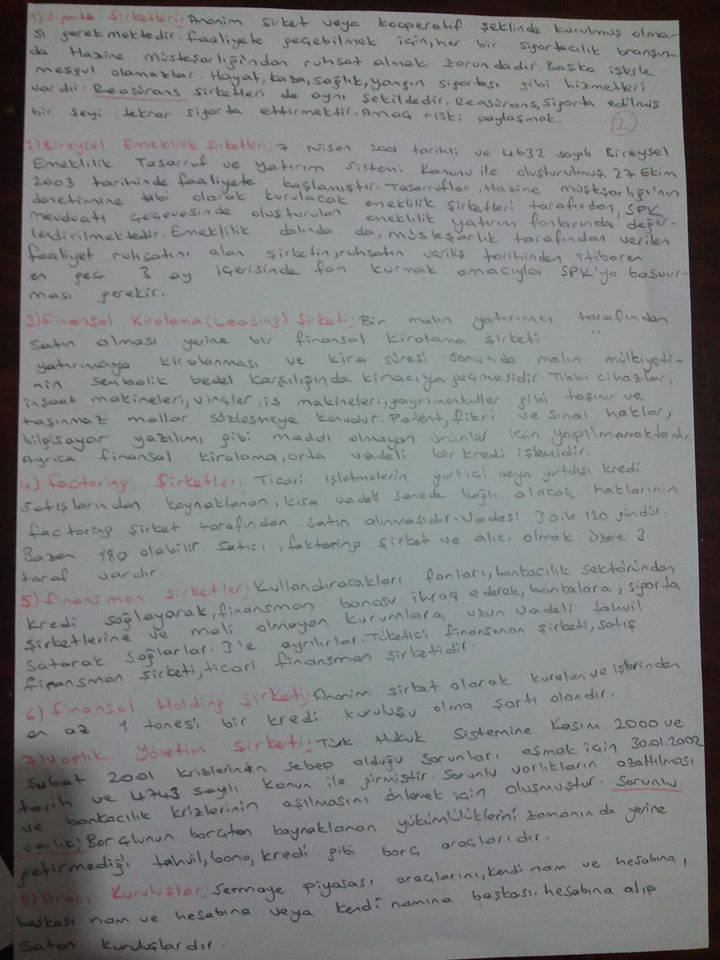 1) Sigorta Şirketleri; Anonim şirket veya kooperatif şeklinde kurulmuş olma-
sı gerekmektedir. Faaliyete geçebilmek için, her bir sigortacılık branşın-
da Hazine Müsteşarlığı'ndan ruhsat almak zorundadır. Başka işlerle
meşgul olamazlar. Hayat, kaza, sağlık, yangın sigortası gibi hizmetleri
vardır. Reasürans şirketleri de aynı şekildedir. Reasürans, sigorta edilmiş
bir şeyi tekrar sigorta ettirmektir. Amaç riski paylaşmak.
2
2) Bireysel Emeklilik Şirketleri; 7 Nisan 2001 tarihli ve 4632 sayılı Bireysel
Emeklilik Tasarruf ve Yatırım Sistemi Kanunu ile oluşturulmuş. 27 Ekim
2003 tarihinde faaliyete başlamıştır. Tasarruflar, Hazine müsteşarlığı'nın
denetimine tabi olarak kurulacak emeklilik şirketleri tarafından, SPK
mevzuatı çerçevesinde oluşturulan emeklilik yatırım fonlarında değer-
lendirilmektedir. Emeklilik dalında da, müsteşarlık tarafından verilen
faaliyet ruhsatını alan şirketin, ruhsatın veriliş tarihinden itibaren
en geç 3 ay içerisinde fon kurmak amacıyla SPK'ya başvur-
ması gerekir.
3) Finansal Kiralama (Leasing) Şirketi; Bir malın yatırımcı tarafından
satın alması yerine bir finansal kiralama şirketi
yatırımcıya kiralanması ve kira süresi sonunda malın mülkiyeti-
nin sembolik bedel karşılığında kiracıya geçmesidir. Tıbbi cihazlar,
inşaat makineleri, vinçler, iş makineleri, gayrimenkuller gibi taşınır ve
taşınmaz mallar sözleşmeye konudur. Patent, fikri ve sınai haklar,
bilgisayar yazılımı gibi maddi olmayan ürünler için yapılmamaktadır.
Ayrıca finansal kiralama, orta vadeli bir kredi işlemidir.
4) Factoring Şirketleri; Ticari işletmelerin yurtiçi veya yurtdışı kredi
satışlarından kaynaklanan, kısa vadeli senede bağlı alacak haklarının
factoring şirket tarafından satın alınmasıdır. Vadesi 30 ile 120 gündür.
Bazen 180 olabilir. Satıcı, faktoring şirket ve alıcı olmak üzere 3
taraf vardır.
5) Finansman Şirketler; Kullandıracakları fonları, bankacılık sektöründen
kredi sağlayarak, finansman bonosu ihraç ederek, bankalara, sigorta
şirketlerine ve mali olmayan kurumlara uzun vadeli tahvil
satarak sağlarlar. 3'e ayrılırlar. Tüketici finansman şirketi, satış
finansman şirketi, ticari finansman şirketidir.
6) Finansal Holding Şirketi; Anonim şirket olarak kurulan ve işlerinden
en az 1 tanesi bir kredi kuruluşu olma şartı olandır.
7) Varlık Yönetim Şirketi; Türk Hukuk Sistemine Kasım 2000 ve
Şubat 2001 krizlerinin sebep olduğu sorunları aşmak için 30.01.2002
tarih ve 4743 sayılı kanun ile girmiştir. Sorunlu varlıkların azaltılması
ve bankacılık krizlerinin aşılmasını önlemek için oluşmuştur. Sorunlu
varlık; Borçlunun borçtan kaynaklanan yükümlülüklerini zamanın da yerine
getirmediği tahvil, bono, kredi gibi borç araçlarıdır.
8) Aracı Kuruluşlar; Sermaye piyasası araçlarını, kendi nam ve hesabına,
başkası nam ve hesabına veya kendi namına başkası hesabına alıp
satan kuruluşlardır.